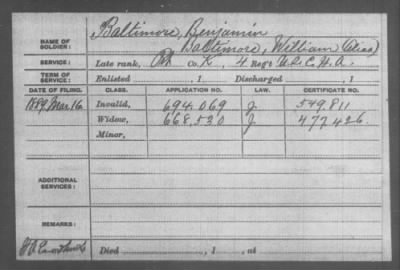 NAME OF SOLDIER: Baltimore, Benjamin
Baltimore, William (Alias)
SERVICE: Late rank, Pvt Co. K, 4 Reg't U.S.C.H.A.
TERM OF SERVICE: Enlisted , 1 Discharged , 1
DATE OF FILING. CLASS. APPLICATION NO. LAW. CERTIFICATE NO.
1889 Mar 16 Invalid, 694.069 J. 549.811
Widow, 668.520 J 477.426.
Minor,
ADDITIONAL SERVICES:
REMARKS:
Died , 1 , at